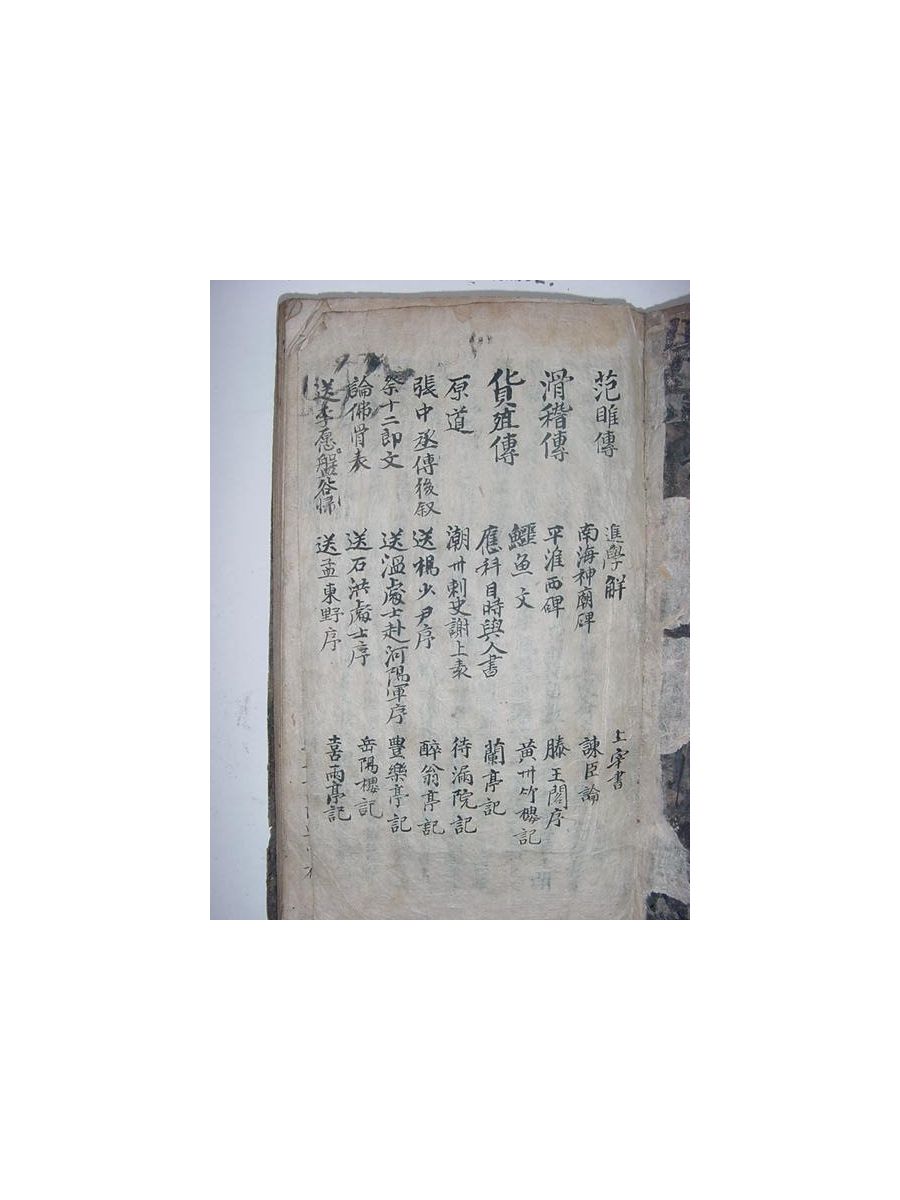 范雎傳
滑稽傳
貨殖傳
原道
張中丞傳後叙
祭十二郎文
論佛骨表
送李愿盤谷
進學解
南海神廟碑
平淮西碑
鱷魚文
應科目時與人書
潮州刺史謝上表
送楊少尹序
送溫處士赴河陽軍序
送石洪處士序
送孟東野序
上宰書
諫臣論
滕王閣序
黃州竹樓記
蘭亭記
待漏院記
醉翁亭記
豐樂亭記
岳陽樓記
喜雨亭記